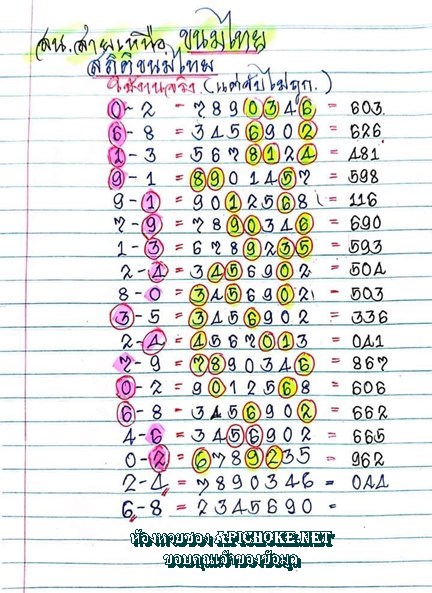 สน.สายเหนือ ขนมไทย
สถิติขนมไทย
ใช้งานจริง (แต่ดับไม่ถูก.)
0-2 = 7890346 = 603
6-8 = 3456902 = 626
1-3 = 5678124 = 481
9-1 = 8901457 = 598
9-1 = 9012568 = 116
7-9 = 7890346 = 690
1-3 = 6789235 = 593
2-4 = 3456902 = 504
8-0 = 3456902 - 503
3-5 = 3456902 = 336
2-4 = 4567013 = 041
7-9 = 7890346 = 867
0-2 = 9012568 = 606
6-8 - 3456902 = 662
4-6 = 3456902 = 665
0-2 = 6789235 = 962
2-4 = 7890346 = 044
6-8 = 2345690 =
ห้องหวยซอง APICHOKE.NET
ขอบคุณเจ้าของข้อมูล